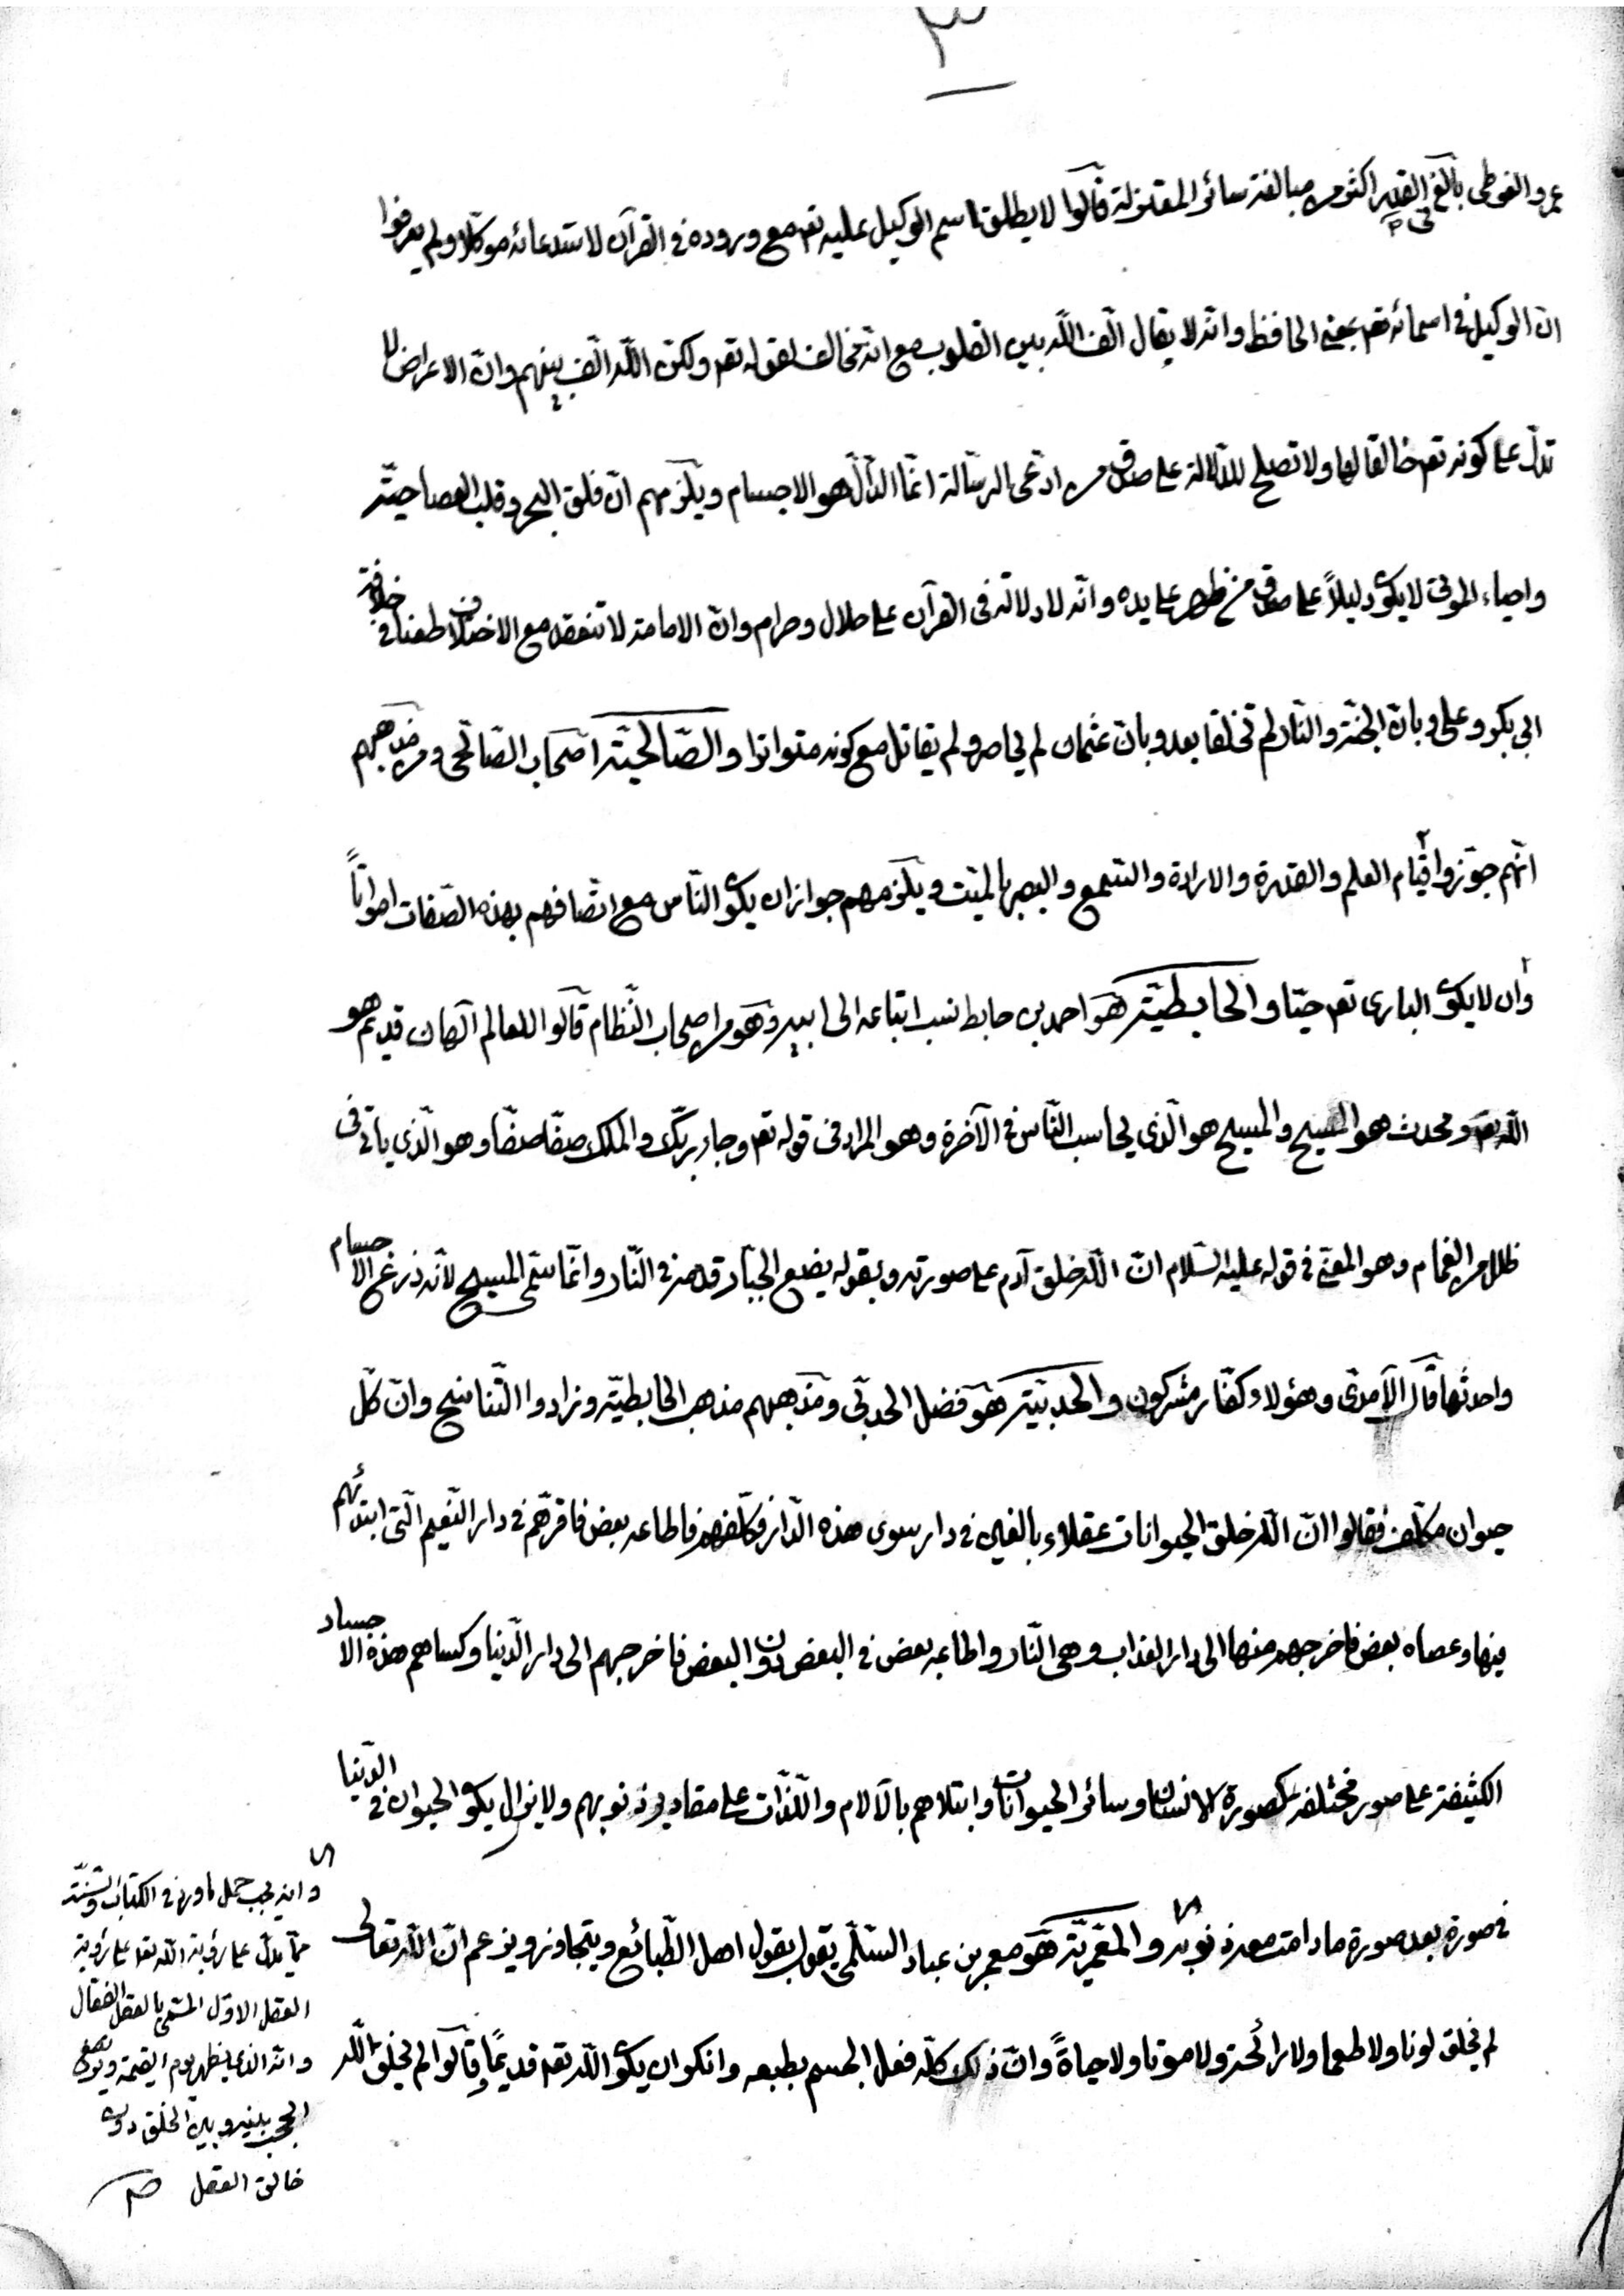 ٣
عمرو الفوطى بالغ فى القدر اكثر من مبالغة سائر المعتزلة قالوا لا يطلق اسم الوكيل عليه تعم مع وروده فى القرآن لاستدعائه موكلا ولم يعرفوا
ان الوكيل فى اسمائه تعم بمعنى الحافظ وانه لا يقال الّف اللّه بين القلوب مع انه مخالف لقوله تعم ولكن اللّه الّف بينهم وان الاعراض لا
تدلّ على كونه تعم خالقا لها ولا تصلح للدّلالة على صدق من ادّعى الرسّالة انمّا الدّالّ هو الاجسام ويلزمهم انّ فلق البحر وقلب العصا حيّة
واحياء الموتى لا يكون دليلاً على صدق من ظهر على يده وانّه لا دلالة فى القرآن على حلال وحرام وانّ الامامة لا تنعقد مع الاختلاف طعنا فى خلافة
ابى بكر وعلى وبانّ الجنّة والنّار لم تخلقا بعد وبانّ عثمان لم يحاصر ولم يقاتل مع كونه متواترا والصّالحيّة اصحاب الصّالحى ومن مذهبهم
انّهم جوّزوا قيام العلم والقدرة والارادة والسّمع والبصر بالميّت ويلزمهم جواز ان يكون النّاس مع اتّصافهم بهذه الصّفات امواتاً
وان لا يكون البارى تعم حيّا والحابطيّة هو احمد بن حابط نسب اتباعه الى ابيه وهو من اصحاب النّظام قالوا للعالم آلهان قديم هو
اللّه تعم ومحدث هو المسيح والمسيح هو الّذى يحاسب النّاس فى الآخرة وهو المراد فى قوله تعم وجاء ربّك والملك صفّا صفّا وهو الّذى ياتى فى
ظلل من الغمام وهو المعنىّ فى قوله عليه السّلام انّ اللّه خلق آدم على صورته وبقوله يضع الجبّار قدمه فى النّار وانّما سمّى المسيح لانّه ذرع الاجسام
واحدثها قال الآمدىّ وهؤلاء كفّار مشركون والحدبيّة هو فضل الحدبىّ ومذهبهم مذهب الحابطيّة وزادوا التّناسخ وانّ كلّ
حيوان مكلّف فقالوا انّ اللّه خلق الحيوانات عقلاء بالغين فى دار سوى هذه الدّار فكلّفهم فاطاعه بعض فاقرّهم فى دار النّعيم الّتى ابتدئهم
فيها وعصاه بعض فاخرجهم منها الى دار العذاب وهى النّار واطاعه بعض فى البعض دون البعض فاخرجهم الى دار الدّنيا وكساهم هذه الاجساد
الكثيفة على صور مختلفة كصورة الانسان وسائر الحيوانات وابتلاهم بالآلام واللّذّات على مقادير ذنوبهم ولا يزال يكون الحيوان فى الدّنيا
فى صورة بعد صورة ما دامت معه ذنوبه والمعمّريّة هو معمر بن عباد السّلمى يقول بقول اهل الطّبائع ويتجاوز ويزعم انّ اللّه تعالى
لم يخلق لونا ولا طعما ولا رائحة ولا موتا ولا حياةً وانّ ذلك كلّه فعل الجسم بطبعه وانكر ان يكون اللّه تعم قديمًا قالوا لم يخلق اللّه
وانه يجب حمل ما ورد فى الكتاب والسّنّة
ممّا يدلّ على رؤية اللّه تعم على رؤية
العقل الاوّل المسمّى بالعقل الفعّال
وانّه الّذى يظهر يوم القيمة ويرفع
الحجب بينه وبين الخلق دون
خالق العقل صح